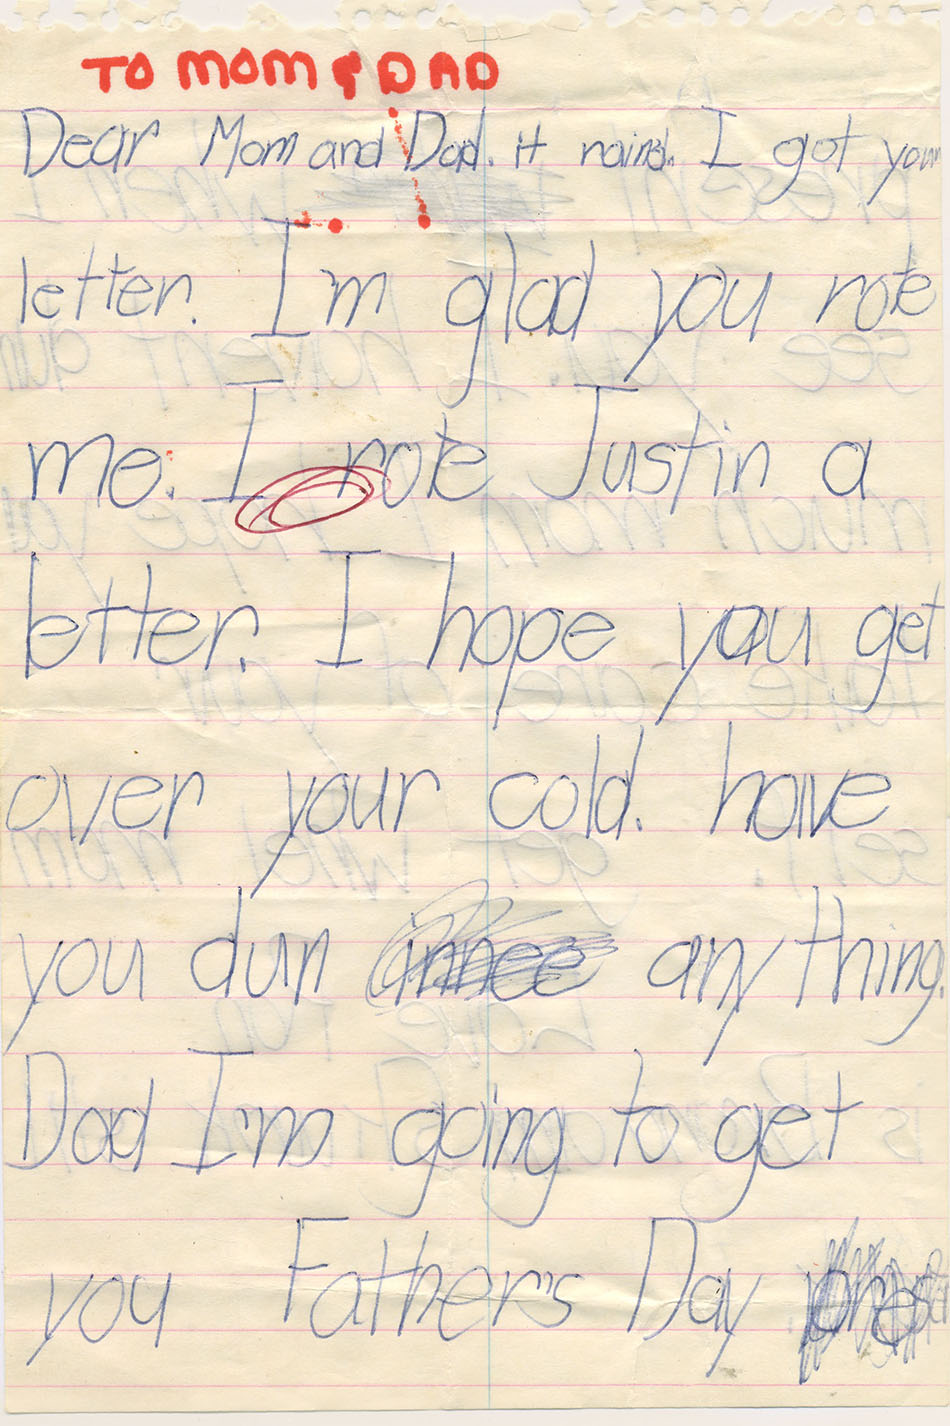 TO MOM & DAD
Dear Mom and Dad. it raind. I got your
letter. I'm glad you rote
me. I rote Justin a
letter. I hope you get
over your cold. have
you dun any thing.
Dad I'm going to get
you Father's Day